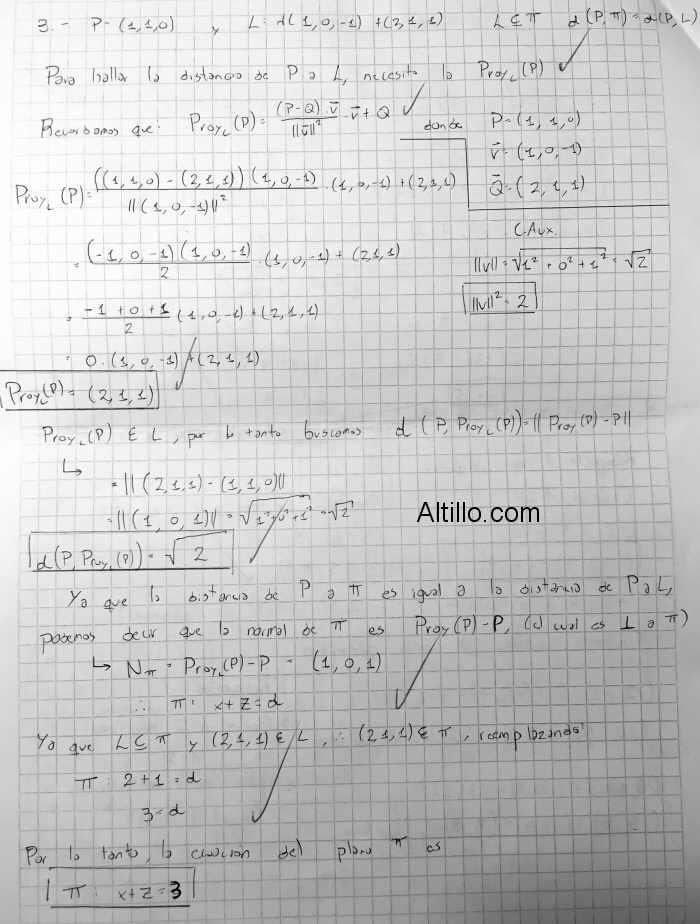 3.- P=(1,1,0) y L: λ(1,0,-1)+(2,1,1) L⊆π d(P,π)=d(P,L)
Para hallar la distancia de P a L, necesito la Proy_L(P)
Recordamos que: Proy_L(P)= ((P-Q)·v⃗)/||v⃗||² · v⃗ + Q donde P=(1,1,0)
v⃗=(1,0,-1)
Q=(2,1,1)
Proy_L(P)= (((1,1,0)-(2,1,1))(1,0,-1))/||(1,0,-1)||² ·(1,0,-1)+(2,1,1)
C.Aux.
= ((-1,0,-1)(1,0,-1))/2 ·(1,0,-1)+(2,1,1)
||v||=√(1²+0²+1²)=√2
||v||²=2
= (-1+0+1)/2 (1,0,-1)+(2,1,1)
= 0·(1,0,-1)+(2,1,1)
Proy_L(P)=(2,1,1)
Proy_L(P) ∈ L, por lo tanto buscamos d(P,Proy_L(P))=||Proy(P)-P||
↳ =||(2,1,1)-(1,1,0)||
=||(1,0,1)||=√(1²+0²+1²)=√2
Altillo.com
d(P,Proy_L(P))=√2
Ya que la distancia de P a π es igual a la distancia de P a L,
podemos decir que la normal de π es Proy_L(P)-P, (el cual es ⊥ a π)
↳ N_π = Proy_L(P)-P = (1,0,1)
∴ π: x+z=d
Ya que L⊆π y (2,1,1)∈L, ∴ (2,1,1)∈π, reemplazando:
π: 2+1=d
3=d
Por lo tanto, la ecuación del plano π es
π: x+z=3